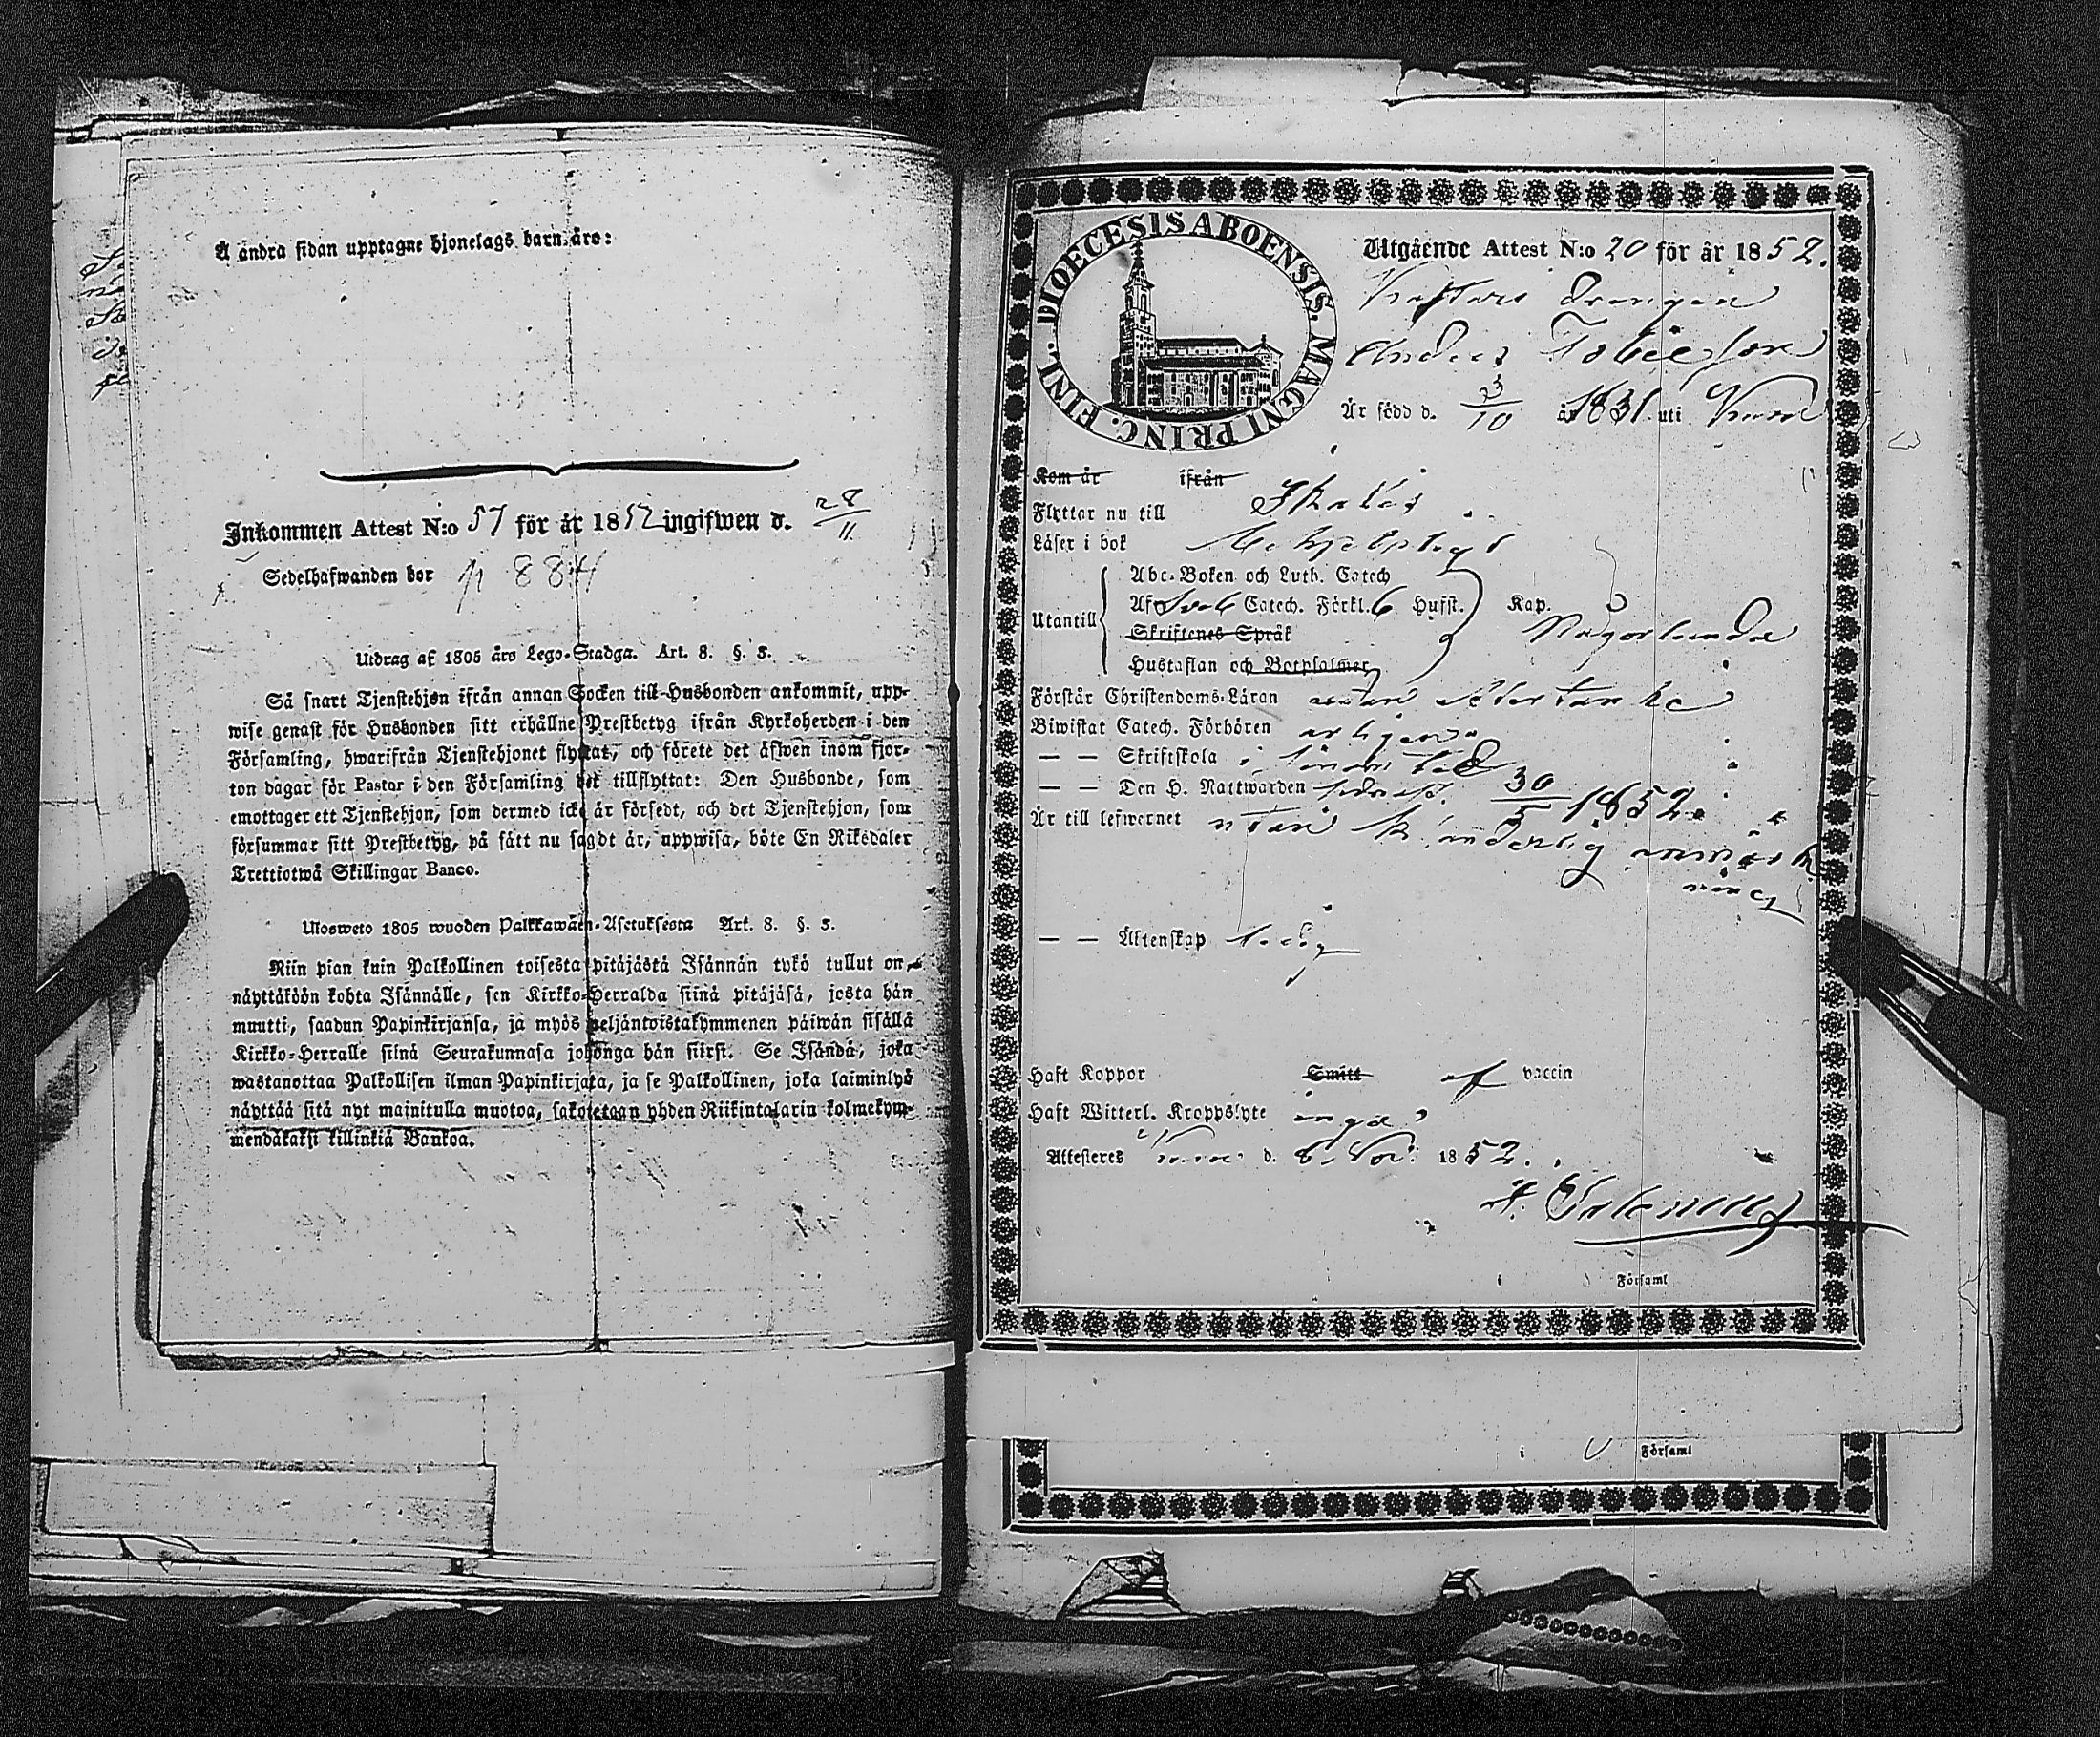 Å andra sidan upptagne hjonelags barn äro:
Inkommen Attest N:o 57 för år 1852 ingifwen d. 28/11
Sedelhafwanden bor p 884
Utdrag af 1805 års Lego-Stadga. Art. 8. §. 5.
Så snart Tjenstehjon ifrån annan Socken till Husbonden ankommit, upp-
wise genast för Husbonden sitt erhållne Prestbetyg ifrån Kyrkoherden i den
Församling, hwarifrån Tjenstehjonet flyttat, och förete det äfwen inom fjor-
ton dagar för Pastor i den Församling det tillflyttat: Den Husbonde, som
emottager ett Tjenstehjon, som dermed icke är försedt, och det Tjenstehjon, som
försummar sitt Prestbetyg, på sätt nu sagdt är, uppwisa, böte En Riksdaler
Trettiotwå Skillingar Banco.
Ulosweto 1805 wuoden Palkkawäen-Asetuksesta Art. 8. §. 5.
Niin pian kuin Palkollinen toisesta pitäjästä Isännän tykö tullut on,
näyttäköön kohta Isännälle, sen Kirkko-Herralda siinä pitäjäsä, josta hän
muutti, saadun Papinkirjansa, ja myös neljäntoistakymmenen päiwän sisällä
Kirkko-Herralle siinä Seurakunnasa johonga hän siirsi. Se Isändä, joka
wastanottaa Palkollisen ilman Papinkirjata, ja se Palkollinen, joka laiminlyö
näyttää sitä nyt mainitulla muotoa, sakotetaan yhden Riikintalarin kolmekym-
mendäkaksi killinkiä Bankoa.
DIOECESIS ABOENSIS. MAGNI PRINC. FINL.
Utgående Attest N:o 20 för år 1852.
Drängen
Anders Tobiesson
Är född d. 23/10 år 1831 uti
Kom år ifrån
Flyttar nu till Ikalis
Läser i bok
Utantill
Abc-Boken och Luth. Catech
Af Sveb Catech. Förkl. 6 Hufst. Kap.
Skriftenes Språk Någorlunda
Hustaflan och Botpsalmer
Förstår Christendoms-Läran
Biwistat Catech. Förhören årligen
— — Skriftskola
— — Den H. Nattwarden sednast 30/5 1852.
Är till lefwernet utan
— — Äktenskap ledig
Haft Koppor Smitt af vaccin
Haft Witterl. Kroppslyte inga
Attesteres d. 6 Nov: 1852.
i Församl
i Församl